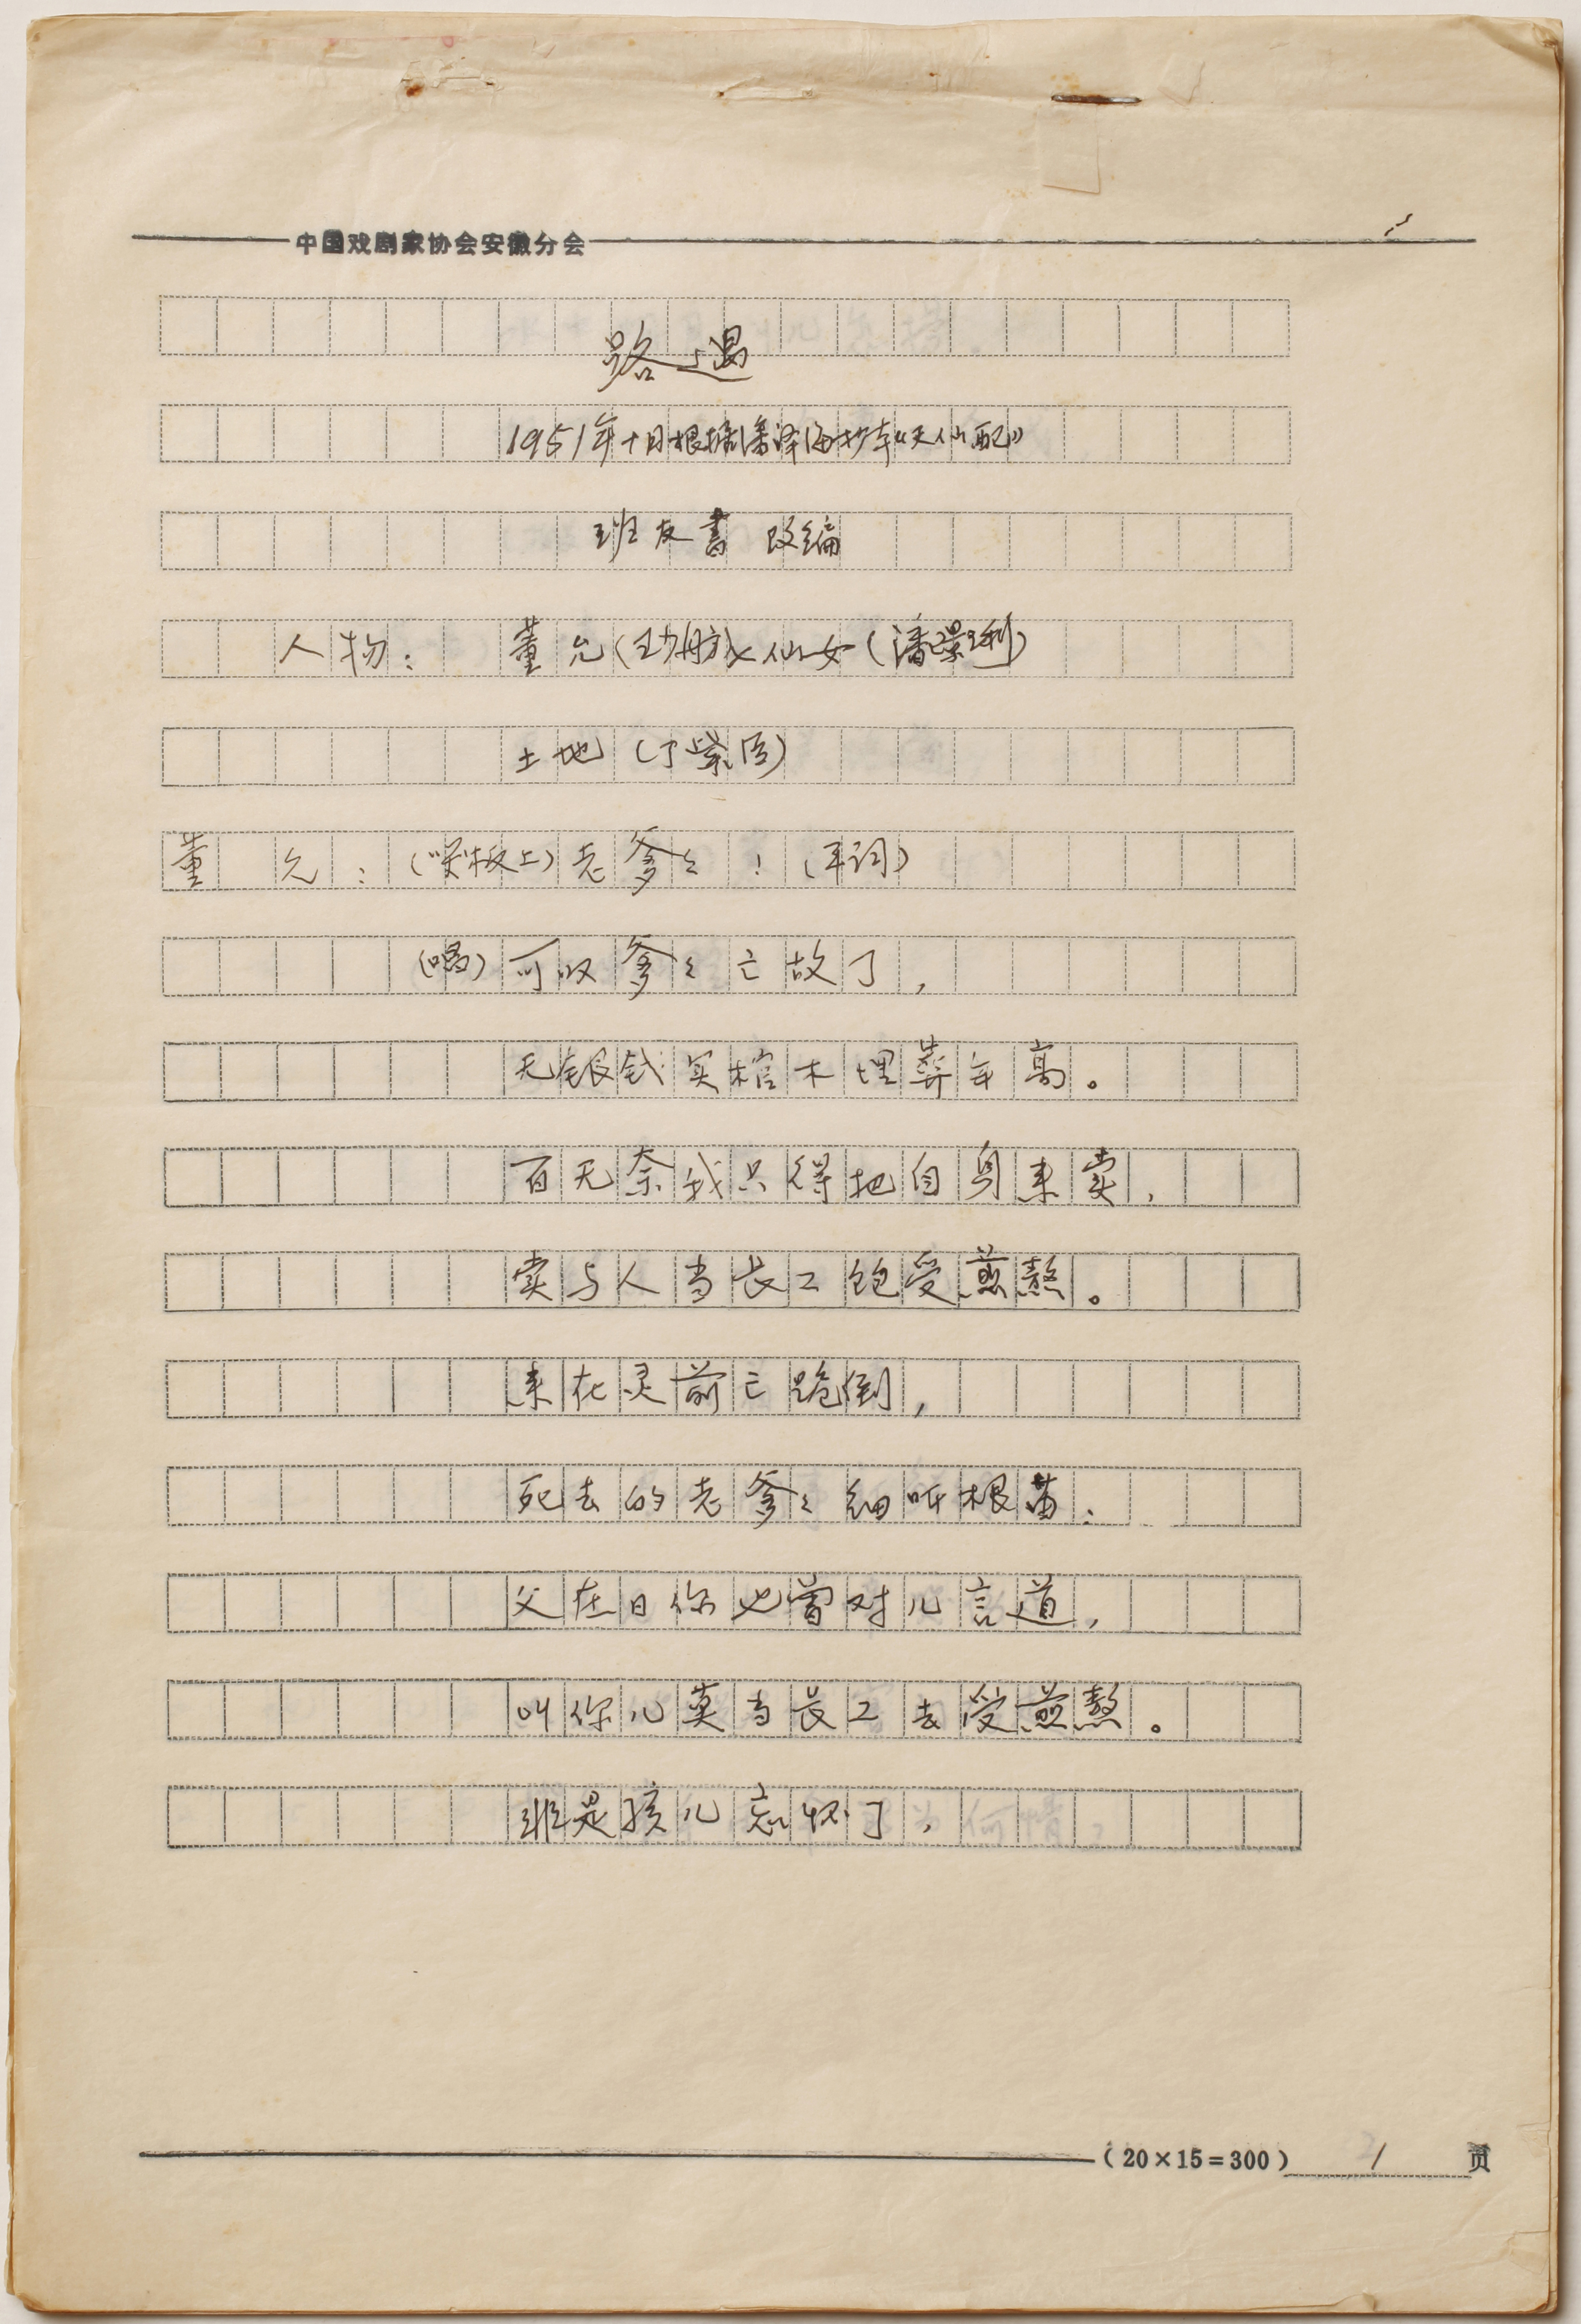 中国戏剧家协会安徽分会
路遇
1951年十月根据潘泽海抄本《天仙配》
班友书 改编
人物： 董允（王少舫）七仙女（潘璟琍）
土地（丁紫臣）
董 允：（哭板上）老爹々！（耳词）
（唱）可叹爹々亡故了，
无银钱买棺木埋葬年高。
百无奈我只得把自身来卖，
卖与人当长工饱受煎熬。
来在灵前己跪倒，
死去的老爹々细听根苗：
父在日你也曾对儿言道，
叫你儿莫当长工去受煎熬。
非是孩儿忘怀了，
（20×15＝300） 1 页